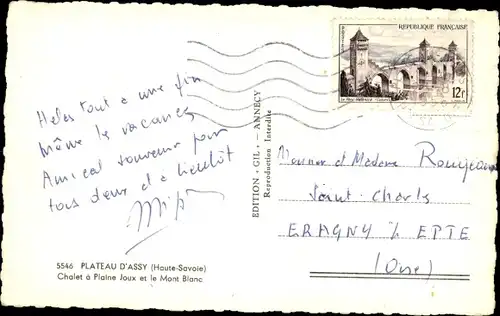 Helas tout a une fin
même le vacances
Amical souvenir pour
tous deux et à bientôt
5546 PLATEAU D'ASSY (Haute-Savoie)
Chalet à Plaine Joux et le Mont Blanc
EDITION « GIL » - ANNECY
Reproduction Interdite
REPUBLIQUE FRANÇAISE
12f
Monsieur et Madame
Saint-Charles
ERAGNY s/ EPTE
(Oise)